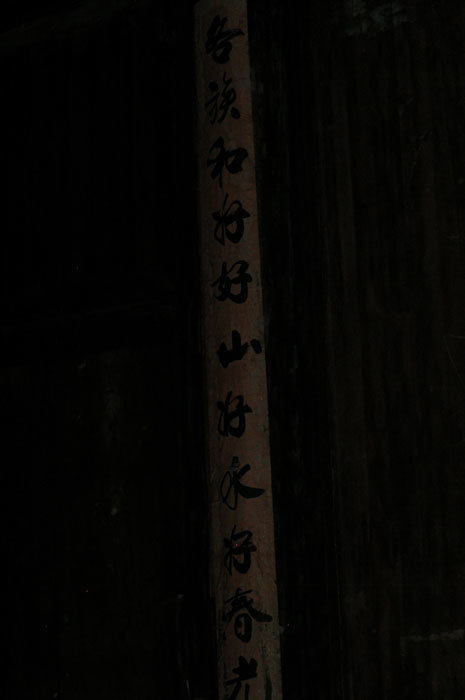 各族和好好山好水好春光